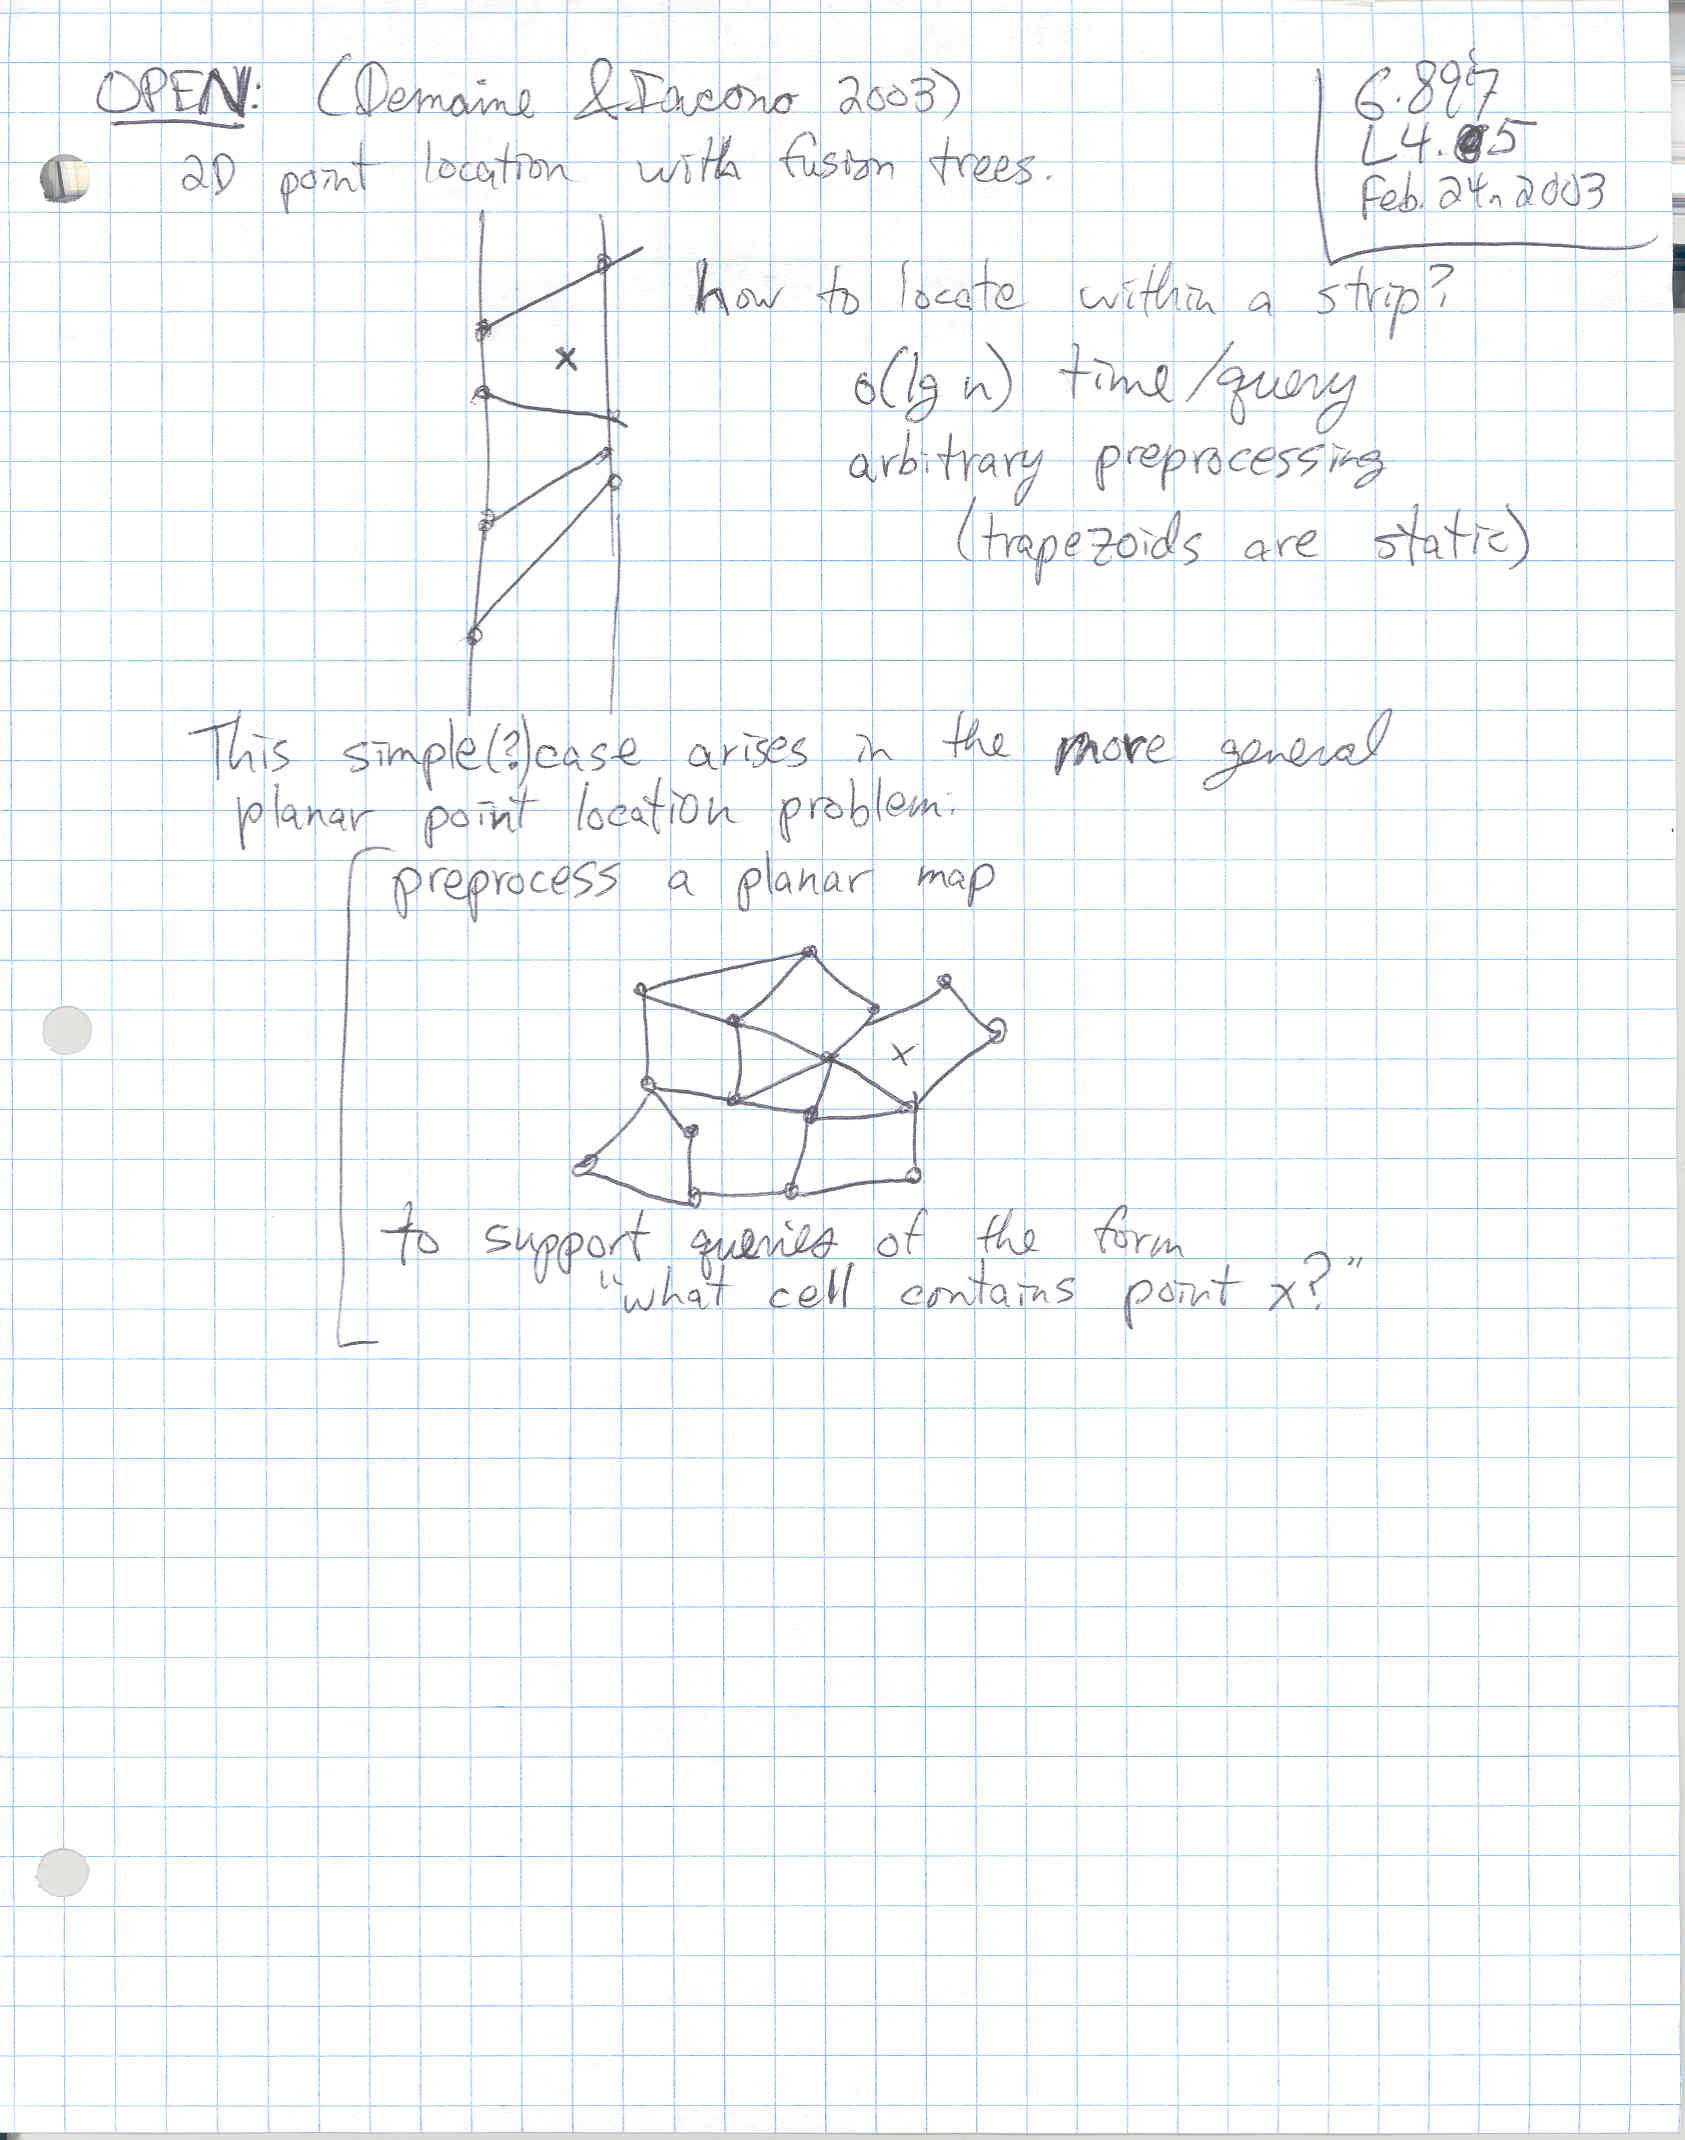 OPEN: (Demaine & Iacono 2003)
2D point location with fusion trees.
6.897
L4.5
Feb. 24, 2003
how to locate within a strip?
o(lg n) time/query
arbitrary preprocessing
(trapezoids are static)
x
This simple(?) case arises in the more general
planar point location problem:
preprocess a planar map
x
to support queries of the form
"what cell contains point x?"